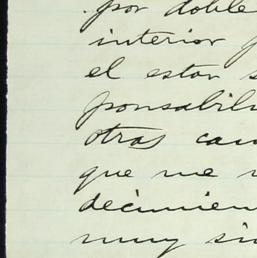 por doble
interior
el estar s
ponsabili
otras cau
que me
decimien
muy sin